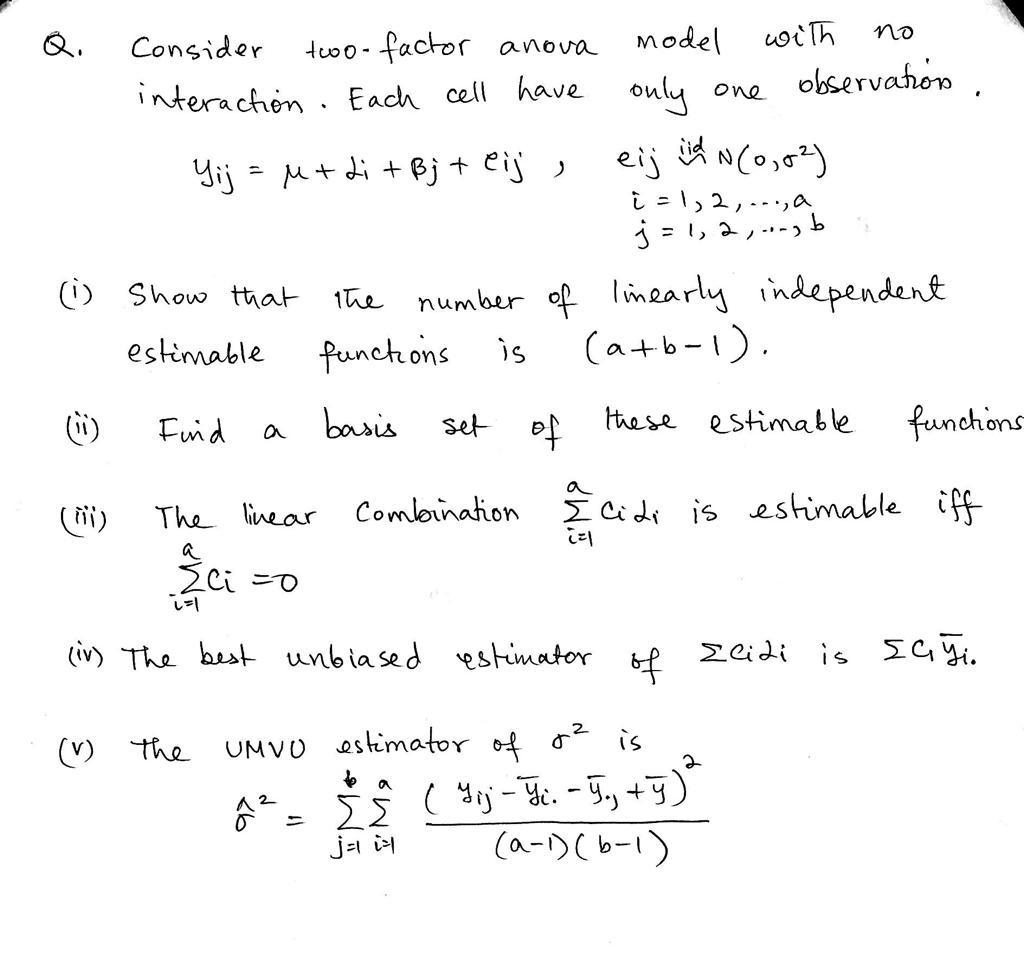 Q. Consider two-factor anova model with no
interaction. Each cell have only one observation.
yij = μ + αi + βj + eij , eij iid~ N(0,σ²)
i = 1, 2, ..., a
j = 1, 2, ..., b
(i) Show that the number of linearly independent
estimable functions is (a+b-1).
(ii) Find a basis set of these estimable functions
(iii) The linear Combination Σ_{i=1}^{a} ci αi is estimable iff
Σ_{i=1}^{a} ci = 0
(iv) The best unbiased estimator of Σciαi is Σci ȳi.
(v) The UMVU estimator of σ² is
σ̂² = Σ_{j=1}^{b} Σ_{i=1}^{a} (yij - ȳi. - ȳ.j + ȳ)² / (a-1)(b-1)